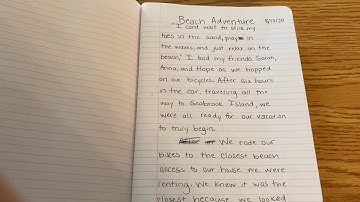 Beach Adventure 8/13/20
"I cant wait to stick my
toes in the sand, play in
the waves, and just relax on the
beach," I told my friends Sarah,
Anna, and Hope as we hopped
on our bicycles. After six hours
in the car, traveling all the
way to Seabrook Island, we
were all ready for our vacation
to truly begin.
We rode our
bikes to the closest beach
access to our house we were
renting. We knew it was the
closest because we looked